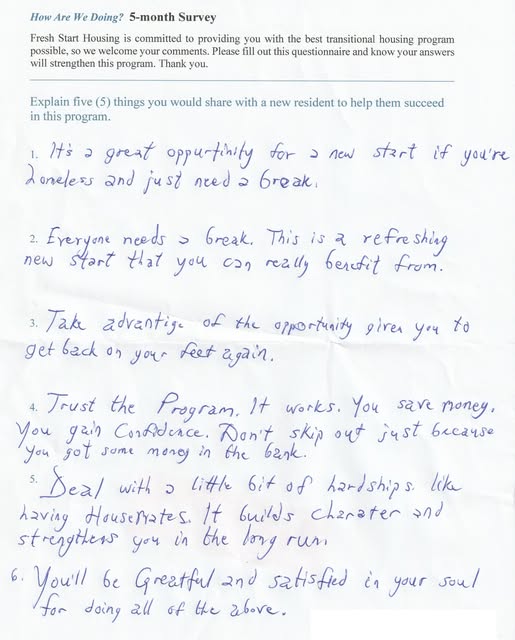 How Are We Doing? 5-month Survey
Fresh Start Housing is committed to providing you with the best transitional housing program
possible, so we welcome your comments. Please fill out this questionnaire and know your answers
will strengthen this program. Thank you.
Explain five (5) things you would share with a new resident to help them succeed
in this program.
1. It's a great oppurtinity for a new start if you're
homeless and just need a break.
2. Everyone needs a break. This is a refreshing
new start that you can really benefit from.
3. Take advantige of the opportunity given you to
get back on your feet again.
4. Trust the Program. It works. You save money.
You gain Confidence. Don't skip out just because
you got some money in the bank.
5. Deal with a little bit of hardships. like
having HouseMates. It builds charater and
strengthens you in the long run.
6. You'll be Greatful and satisfied in your soul
for doing all of the above.